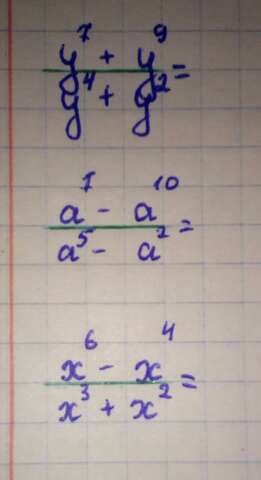 y⁷ + y⁹
y⁴ + y² =
a⁷ - a¹⁰
a⁵ - a² =
x⁶ - x⁴
x³ + x² =